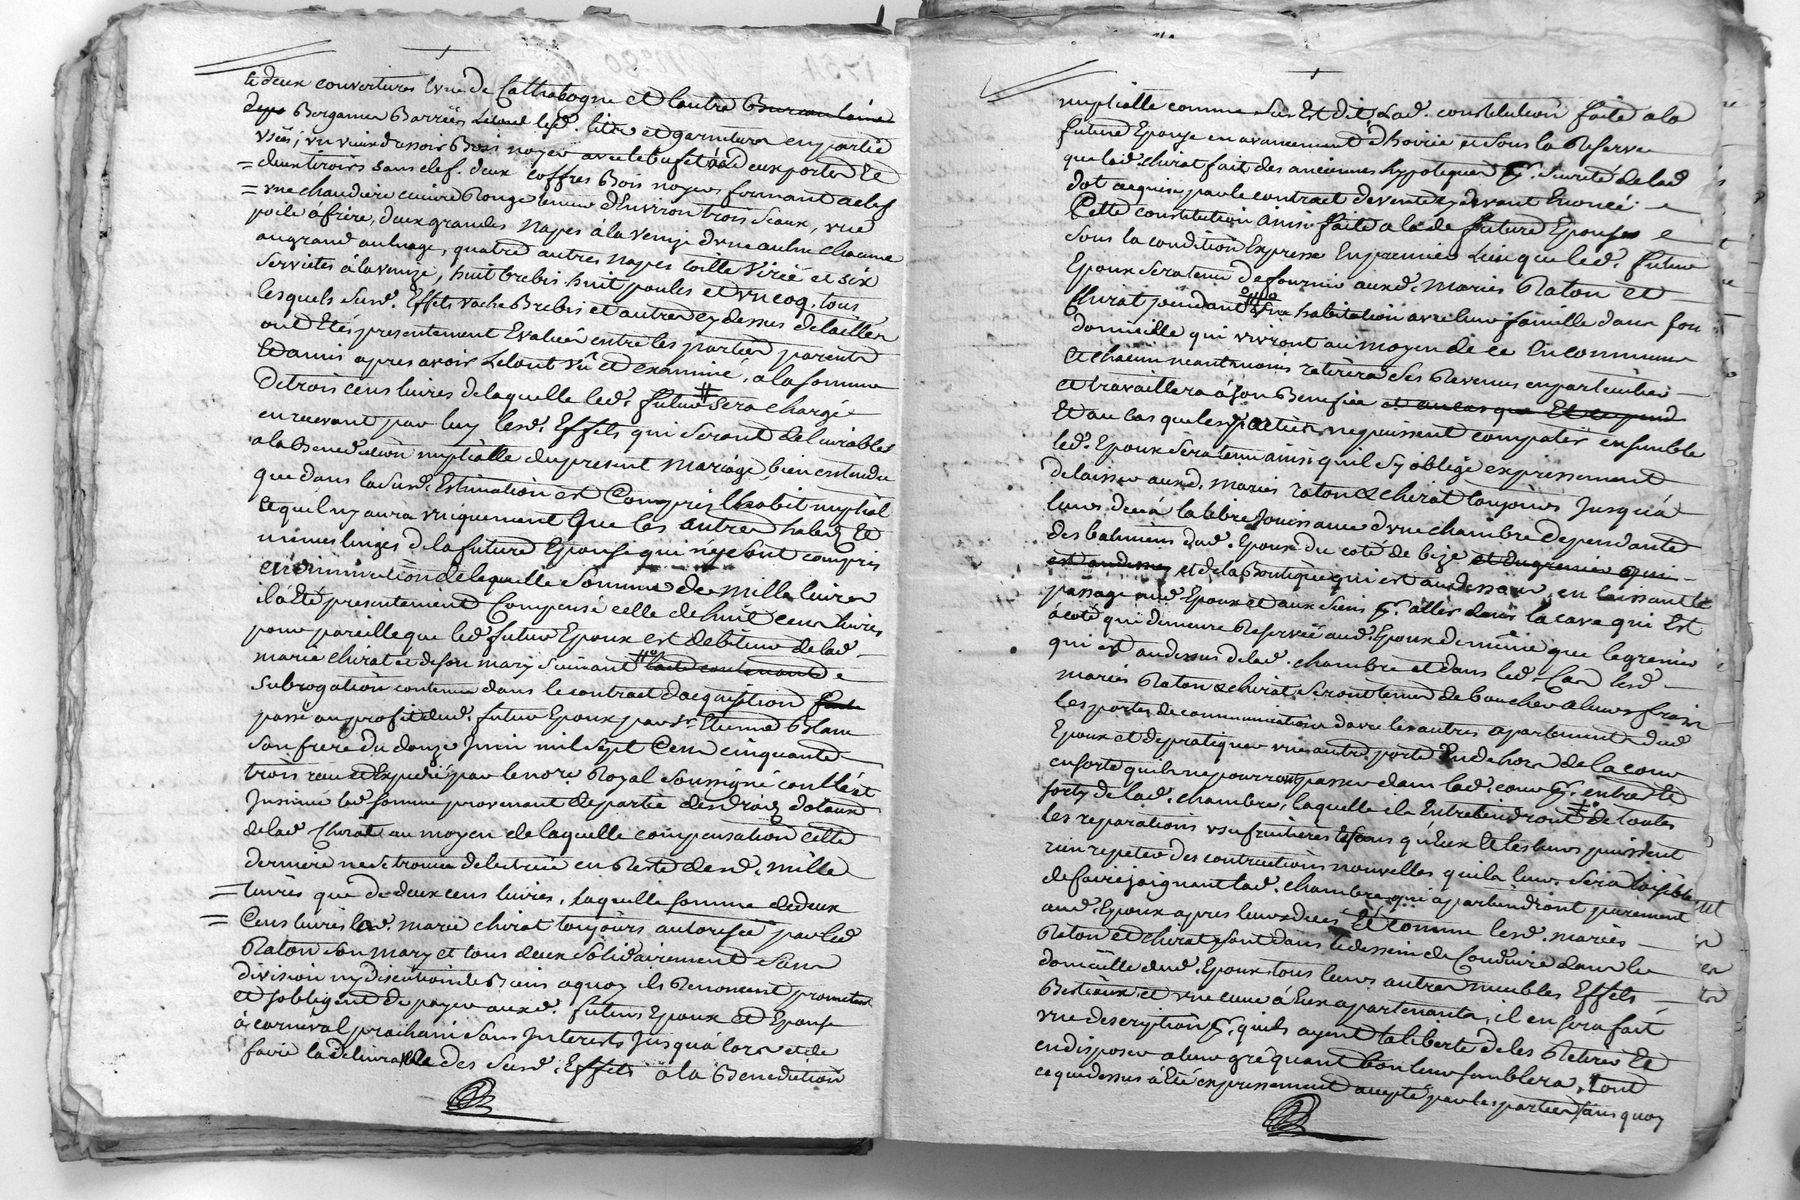 & deux couvertures l'une de Cathalogne et l'autre Bureau laine
Bergame Barrées led. litre et garniture en partie
Usés, un vieux dressoir Bois noyer avec le bufet à deux portes Et
= deux tiroirs sans clef. deux Coffres Bois noyer fermant a clef
= une chaudiere cuivre Rouge tenue d'Environ trois seaux, une
poile à frire, deux grandes Napes à la Venize d'une aulne chacune
au grand aulnage, quatre autres napes toille et six
serviettes à la venize, huit brebis, huit poules et un coq, tous
lesquels susd. Effets vache Brebis et autres cy dessus detaillés
ont Etés presentement Evalués entre les parties parents
Et amis apres avoir Letout vû et examiné, a la somme
De trois cens livres de laquelle led. futur sera chargé
en recevant par luy lesd. Effets qui seront delivrables
a la Benediction nuptialle du present Mariage, bien entendu
que dans la susd. Estimation est Compris l'habit nuptial
Et qu'il n'y aura uniquement Que les autres habits Et
menus linges de la future Epouse qui n'y soit compris
en diminution de laquelle somme de mille livres
il a Eté presentement Compensé celle de huit cens livres
pour pareille que led. futur Epoux est debiteur de lad.
marie chirat et de son mary suivant la
subrogation contenue dans le contract d'acquisition
passé au profit dud. futur Epoux par sr. Etienne Blanc
son frere du douze Juin mil sept Cens cinquante
trois receu et Expedié par le nore. Royal soussigné conllé et
Insinué lad. somme provenant de partie des droits dotaux
de lad. Chirat au moyen de laquelle compensation cette
derniere ne se trouve debitrice en Reste desd. mille
= livres que de deux cens livres, laquelle somme de deux
= Cens livres lad. marie chirat toujours autorisée par led.
Raton son mary et tous deux solidairement sans
division ny discution de Biens a quoy ils Renoncent promettent
et s'obligent de payer auxd. futurs Epoux et Epouse
à carneval prochain sans Interests Jusqu'à lors et de
faire la delivrance des susd. Effets a la Benediction
nuptialle comme sus Est dit, Lad. constitution faite a la
future Epouse en avancement d'hoirie et sous la Reserve
que lad. chirat fait des anciennes hypoteques pr. sureté de lad.
dot acquise par le contract de vente cy devant Enoncé.
Cette constitution ainsi faite a lad. future Epouse
sous la condition Expresse En premier Lieu que led. futur
Epoux sera tenu de fournir auxd. mariés Raton et
Chirat pendant leur habitation avec leur famille dans son
domicille qui vivront au moyen de ce En commun
Et chacun neantmoins retirera ses Revenus en particulier
et travaillera à son Benefice et au cas que
Et au cas que lesd. parties ne puissent compatir ensemble
led. Epoux sera tenu ainsi qu'il s'y oblige expressement
de laisser auxd. mariés raton & chirat toujours Jusqu'à
leurs deces la libre Jouissance d'une chambre dependante
des batimens dud. Epoux du coté de bize et du grenier qui
est au dessus et de la Boutique qui est au dessous, en laissant le
passage aud. Epoux et aux siens pr. aller dans la cave qui Est
à coté qui demeure Reservée aud. Epoux de même que le grenier
qui est au dessus de lad. chambre et dans led. Cas lesd.
mariés Raton & chirat seront tenus de boucher a leurs frais
les portes de communication dans les autres apartements dud.
Epoux et de pratiquer une autre porte En dehors de la cour
en sorte qu'ils ne pourront passer dans lad. cour pr. entrer Et
sortir de lad. chambre, laquelle ils Entretiendront de toutes
les reparations usufruitieres sans qu'Eux Et les leurs puissent
rien repeter des contructions nouvelles qu'il leur sera loisible
de faire joignant lad. chambre qui apartiendront purement
aud. Epoux apres leurs deces Et comme lesd. mariés
Raton et chirat sont dans le dessein de Conduire dans le
domicille dud. Epoux tous leurs autres meubles Effets
Bestiaux et une cuve à Eux apartenants, il en sera fait
une description pr. qu'ils ayent la liberté de les Retirer Et
en disposer a leur gré quant bon leur semblera, tout
ce que dessus à Eté expressement accepté par les parties sans quoy